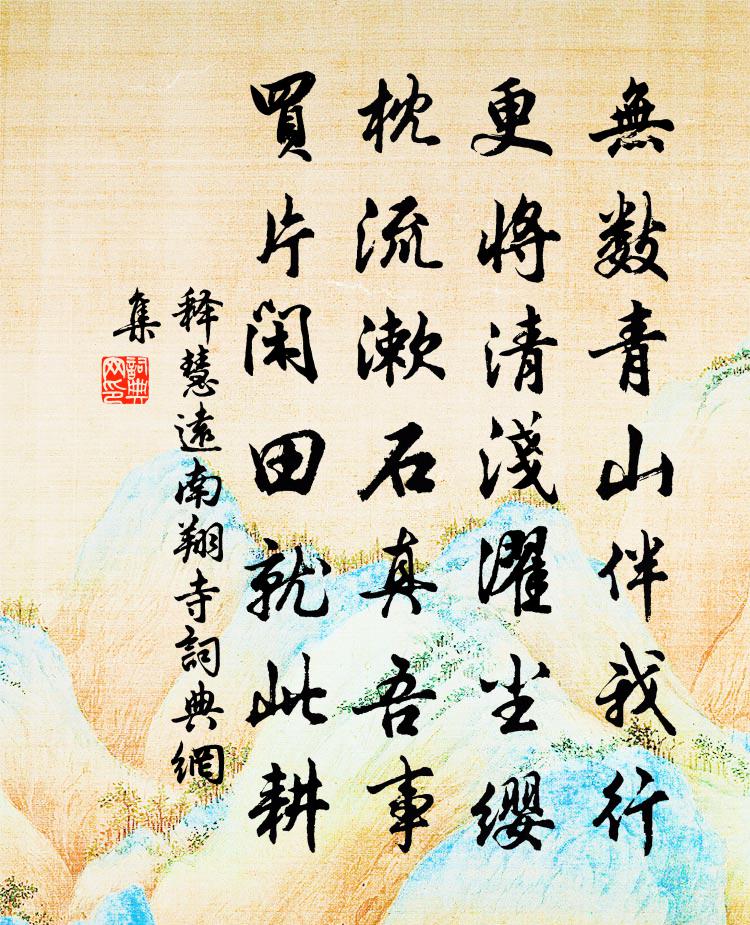 無數青山伴我行
更將清淺濯尘纓
枕流漱石真吾事
買片閑田就此耕
释慧遠南翔寺詞典網
集
詞典網印